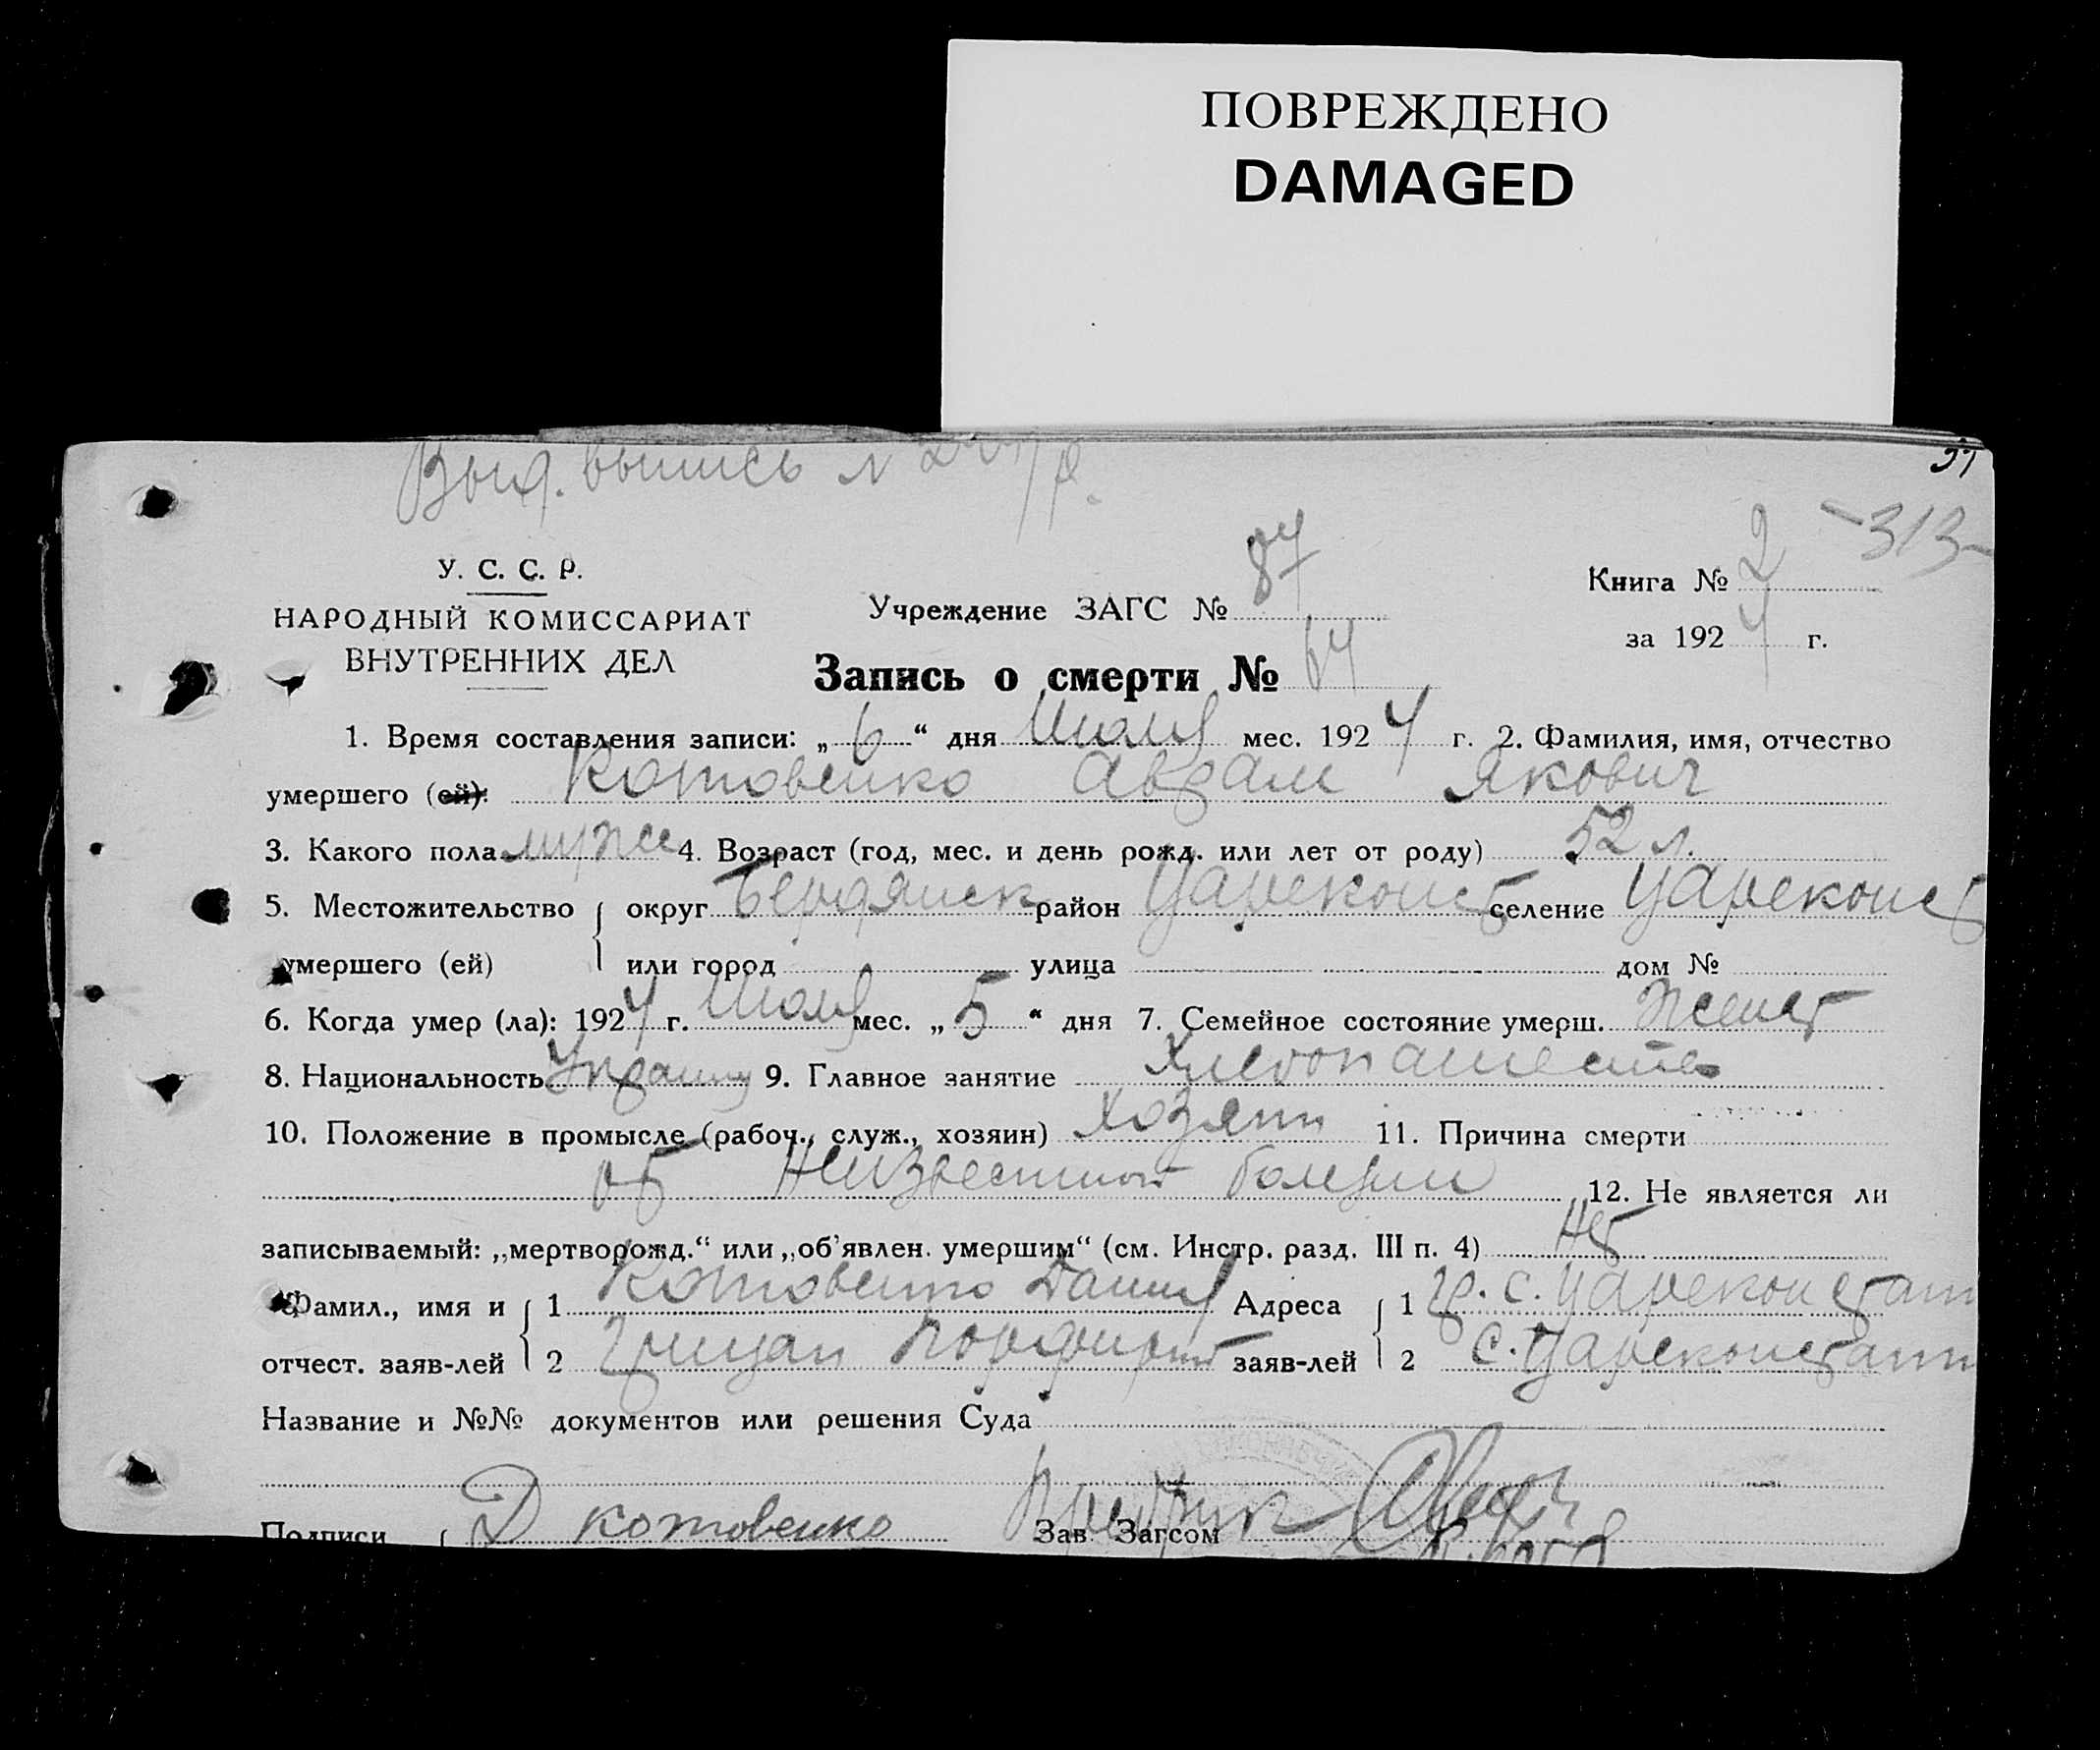 ПОВРЕЖДЕНО
DAMAGED
Выд. выпись N
-313-
У. С. С. Р.
НАРОДНЫЙ КОМИССАРИАТ
ВНУТРЕННИХ ДЕЛ
Учреждение ЗАГС № 84
Книга № 2
за 1924 г.
Запись о смерти № 64
1. Время составления записи: „ 6 “ дня Июля мес. 1924 г. 2. Фамилия, имя, отчество
умершего (ей): Котовенко Аврам Якович
3. Какого пола мужс 4. Возраст (год, мес. и день рожд. или лет от роду) 52 л.
5. Местожительство округ Бердянск район Цареконст селение Цареконст
умершего (ей) или город улица дом №
6. Когда умер (ла): 1924 г. Июля мес. „ 5 “ дня 7. Семейное состояние умерш. Женат
8. Национальность Украинц 9. Главное занятие Хлебопашество
10. Положение в промысле (рабоч., служ., хозяин) хозяин 11. Причина смерти
от Неизвестной болезни 12. Не является ли
записываемый: „мертворожд.“ или „об'явлен. умершим“ (см. Инстр. разд. III п. 4) Нет
Фамил., имя и 1 Котовенко Данил Адреса 1 гр. с. Цареконстант
отчест. заяв-лей 2 Грицай Порфирий заяв-лей 2 с. Цареконстант
Название и №№ документов или решения Суда
Подписи Д Котовенко Зав. Загсом